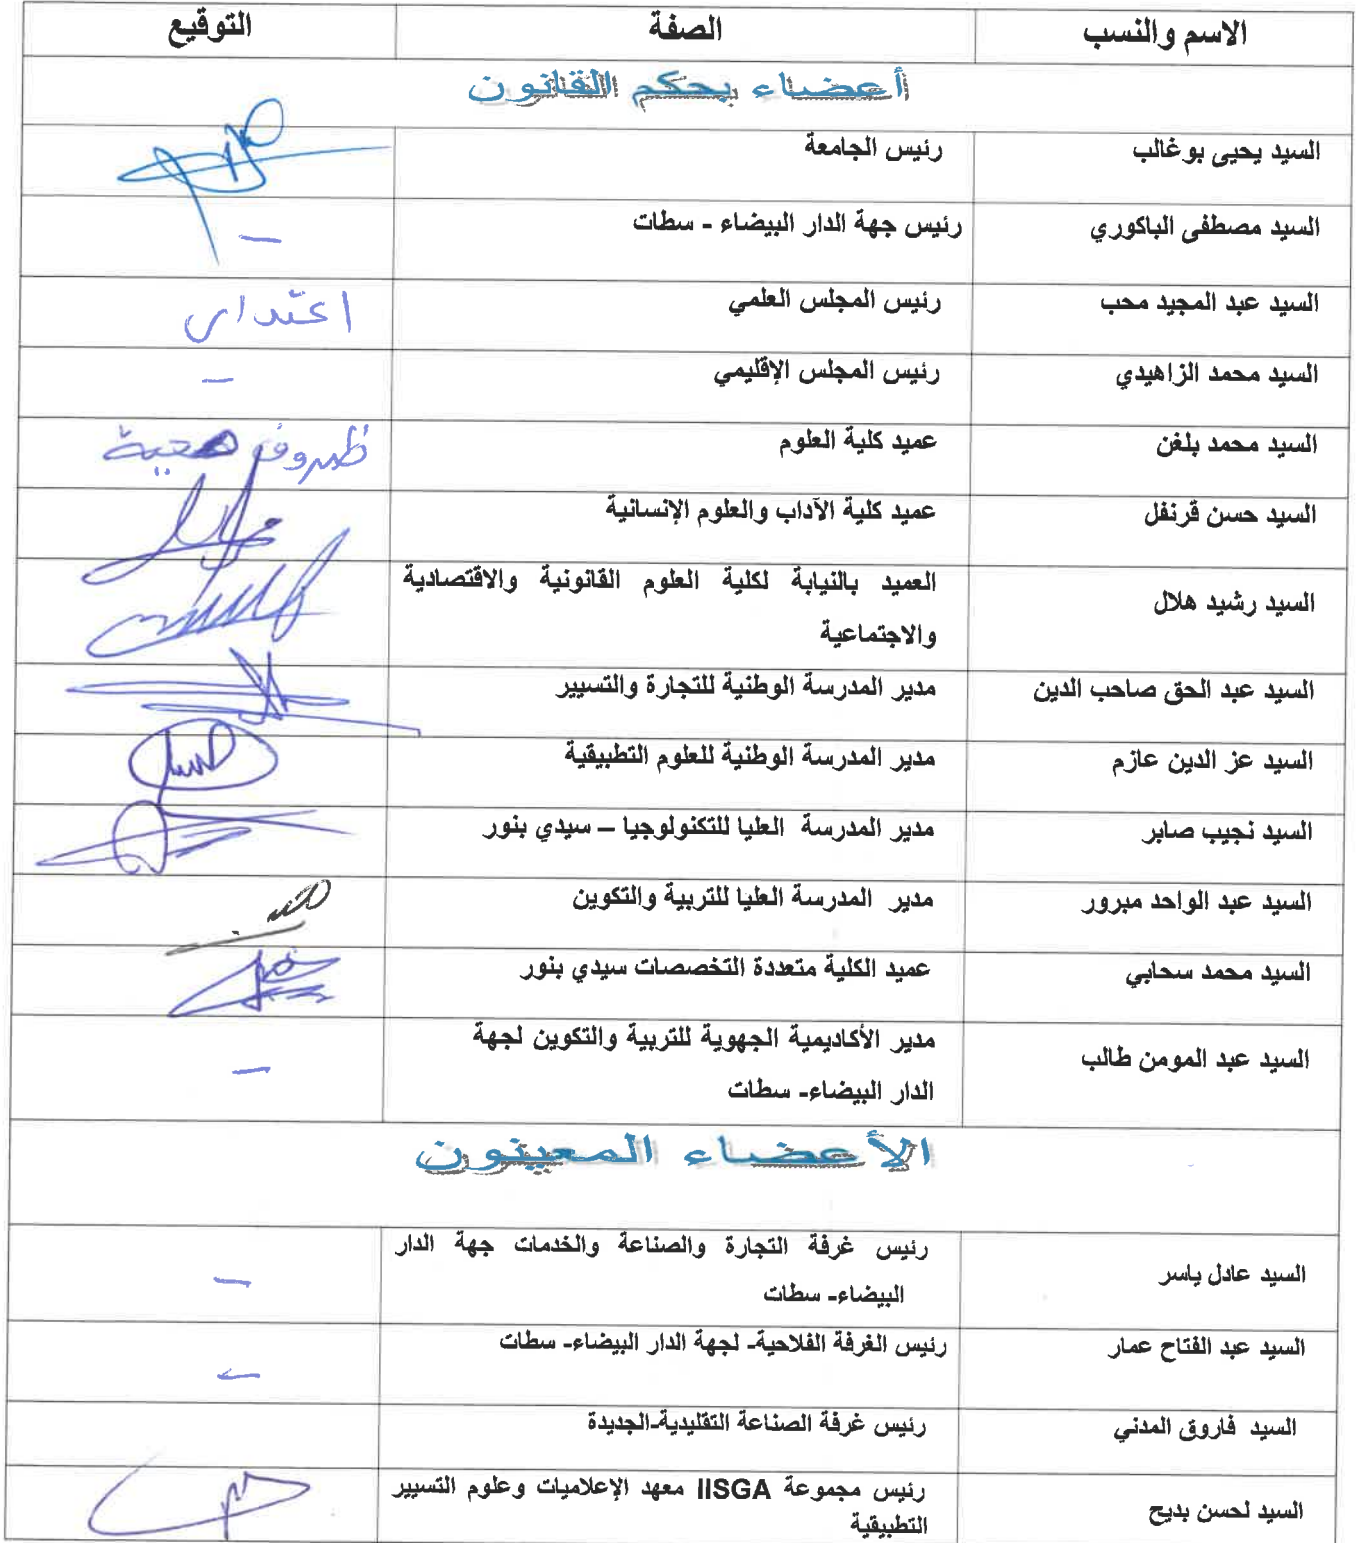 الاسم والنسب الصفة التوقيع
أعضاء بحكم القانون
السيد يحيى بوغالب رئيس الجامعة
السيد مصطفى الباكوري رئيس جهة الدار البيضاء - سطات -
السيد عبد المجيد محب رئيس المجلس العلمي
السيد محمد الزاهيدي رئيس المجلس الإقليمي -
السيد محمد بلغن عميد كلية العلوم ظروف صحية
السيد حسن قرنفل عميد كلية الآداب والعلوم الإنسانية
السيد رشيد هلال العميد بالنيابة لكلية العلوم القانونية والاقتصادية
والاجتماعية
السيد عبد الحق صاحب الدين مدير المدرسة الوطنية للتجارة والتسيير
السيد عز الدين عازم مدير المدرسة الوطنية للعلوم التطبيقية
السيد نجيب صابر مدير المدرسة العليا للتكنولوجيا – سيدي بنور
السيد عبد الواحد مبرور مدير المدرسة العليا للتربية والتكوين
السيد محمد سحابي عميد الكلية متعددة التخصصات سيدي بنور
السيد عبد المومن طالب مدير الأكاديمية الجهوية للتربية والتكوين لجهة
الدار البيضاء- سطات -
الأعضاء المعينون
السيد عادل ياسر رئيس غرفة التجارة والصناعة والخدمات جهة الدار
البيضاء- سطات -
السيد عبد الفتاح عمار رئيس الغرفة الفلاحية- لجهة الدار البيضاء- سطات -
السيد فاروق المدني رئيس غرفة الصناعة التقليدية-الجديدة
السيد لحسن بديح رئيس مجموعة IISGA معهد الإعلاميات وعلوم التسيير
التطبيقية